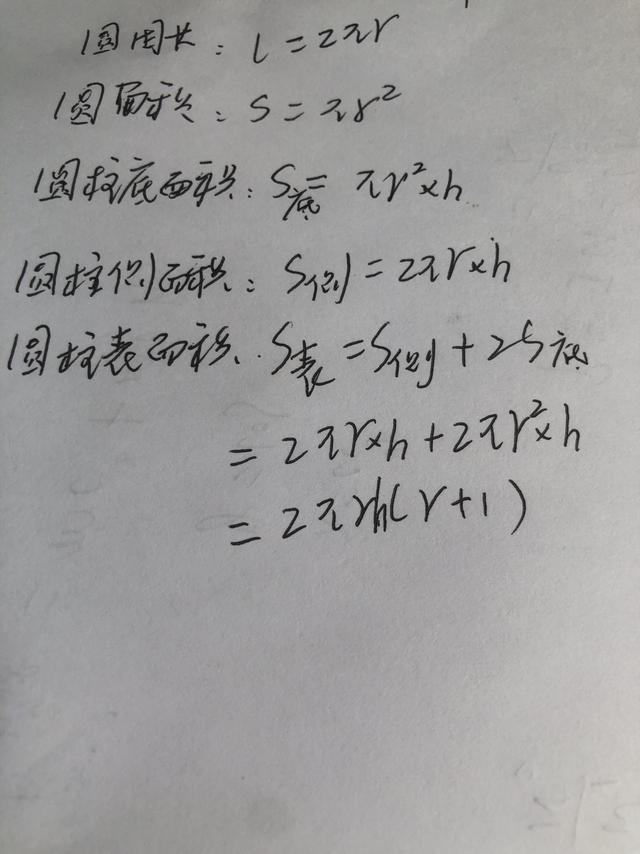 圆周长：l=2πr
圆面积：S=πr²
圆柱底面积：S底=πr²×h
圆柱侧面积：S侧=2πr×h
圆柱表面积：S表=S侧+2S底
=2πr×h+2πr²×h
=2πrh(r+1)